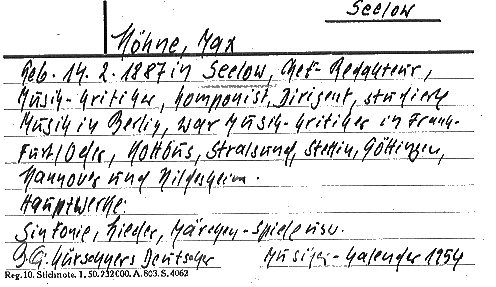 Seelow
Höhne, Max
Geb. 14. 2. 1887 in Seelow, Chef-Redakteur,
Musik-Kritiker, Komponist, Dirigent, studierte
Musik in Berlin, war Musik-Kritiker in Frank-
furt/Oder, Kottbus, Stralsund, Stettin, Göttingen,
Hannover und Hildesheim.
Hauptwerke:
Sinfonie, Lieder, Märchen-Spiele usw.
Kürschners Deutscher Musiker-Kalender 1954
Reg. 10. Stichnote. 1. 50. 232000. A. 803. S. 4062